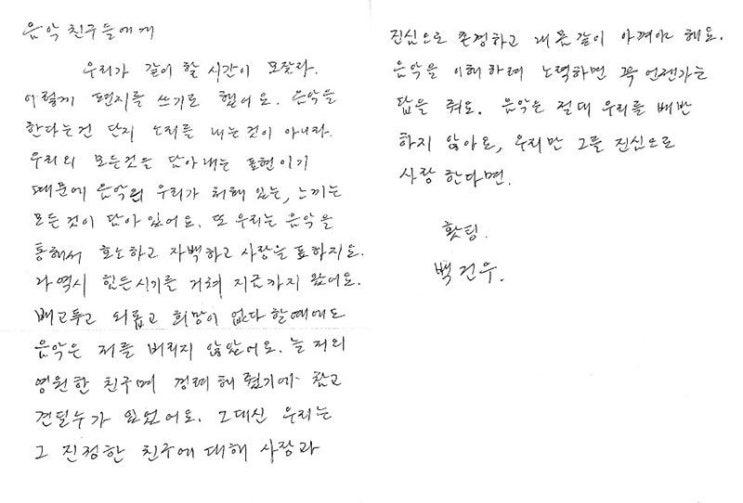 음악 친구들에게
우리가 같이 할 시간이 모잘라.
이렇게 편지를 쓰기로 했어요. 음악을
한다는건 단지 소리를 내는것이 아니라.
우리의 모든것을 담아내는 표현이기
때문에 음악의 우리가 처해 있는, 느끼는
모든것이 담아 있어요. 또 우리는 음악을
통해서 호소하고 자백하고 사랑을 표하지요.
나 역시 힘든시기를 거쳐 지금까지 왔어요.
배고푸고 외롭고 희망이 없다 할때에도
음악은 저를 버리지 않았어요. 늘 저의
영원한 친구며 격려해 줬기에 참고
견딜수가 있었어요. 그대신 우리는
그 진정한 친구에 대해 사랑과
진심으로 존경하고 내 몸같이 아껴야 해요.
음악을 이해하려 노력하면 꼭 언젠가는
답을 줘요. 음악은 절대 우리를 배반
하지 않아요, 우리만 그를 진심으로
사랑 한다면.
홧팅.
백건우.